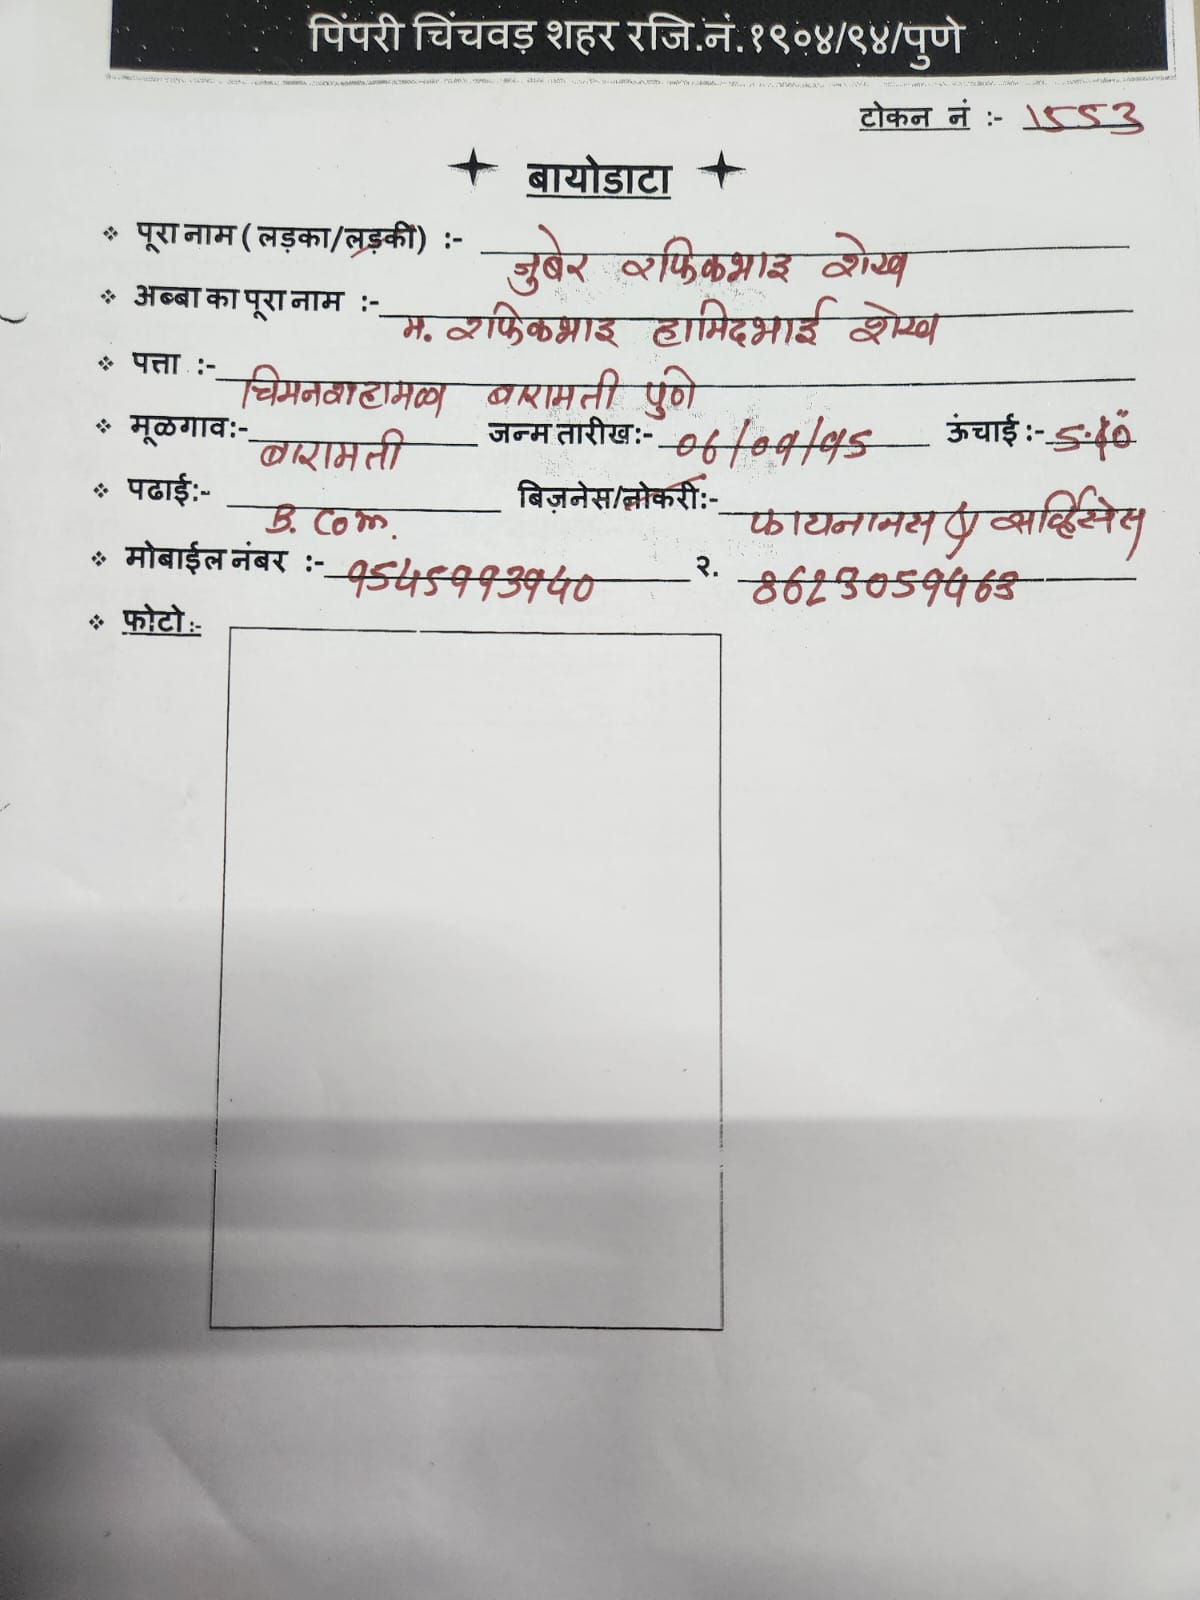 पिंपरी चिंचवड़ शहर रजि.नं.१९०४/९४/पुणे
टोकन नं :- 1553
बायोडाटा
पूरा नाम ( लड़का/लड़की) :- जुबेर रफिकभाइ शेख
अब्बा का पूरा नाम :- म. रफिकभाइ हामिदभाई शेख
पत्ता :- चिमनशहामळा बारामती पुणे
मूळगाव:- बारामती जन्म तारीख:- 06/09/95 ऊंचाई :- 5.10"
पढाई:- B. Com. बिज़नेस/नोकरी:- फायनानस सर्व्हिसेस
मोबाईल नंबर :- 9545993940 २. 8623059463
फोटो:-